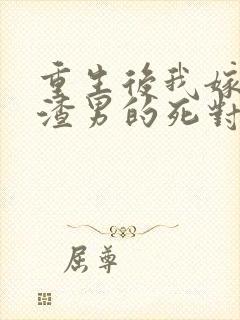 重生後我嫁
渣男的死對
屈尊